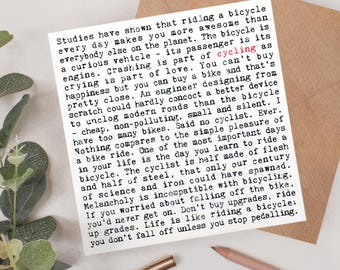 Studies have shown that riding a bicycle
every day makes you more awesome than
everybody else on the planet. The bicycle is
a curious vehicle - its passenger is its
engine. Crashing is part of cycling as
crying is part of love. You can't buy
happiness but you can buy a bike and that's
pretty close. An engineer designing from
scratch could hardly concoct a better device
to unclog modern roads than the bicycle
- cheap, non-polluting, small and silent. I
have too many bikes. Said no cyclist. Ever.
Nothing compares to the simple pleasure of
a bike ride. One of the most important days
in your life is the day you learn to ride a
bicycle. The cyclist is half made of flesh
and half of steel, that only our century
of science and iron could have spawned.
Melancholy is incompatible with bicycling.
If you worried about falling off the bike,
you'd never get on. Don't buy upgrades, ride
up grades. Life is like riding a bicycle:
you don't fall off unless you stop pedalling.